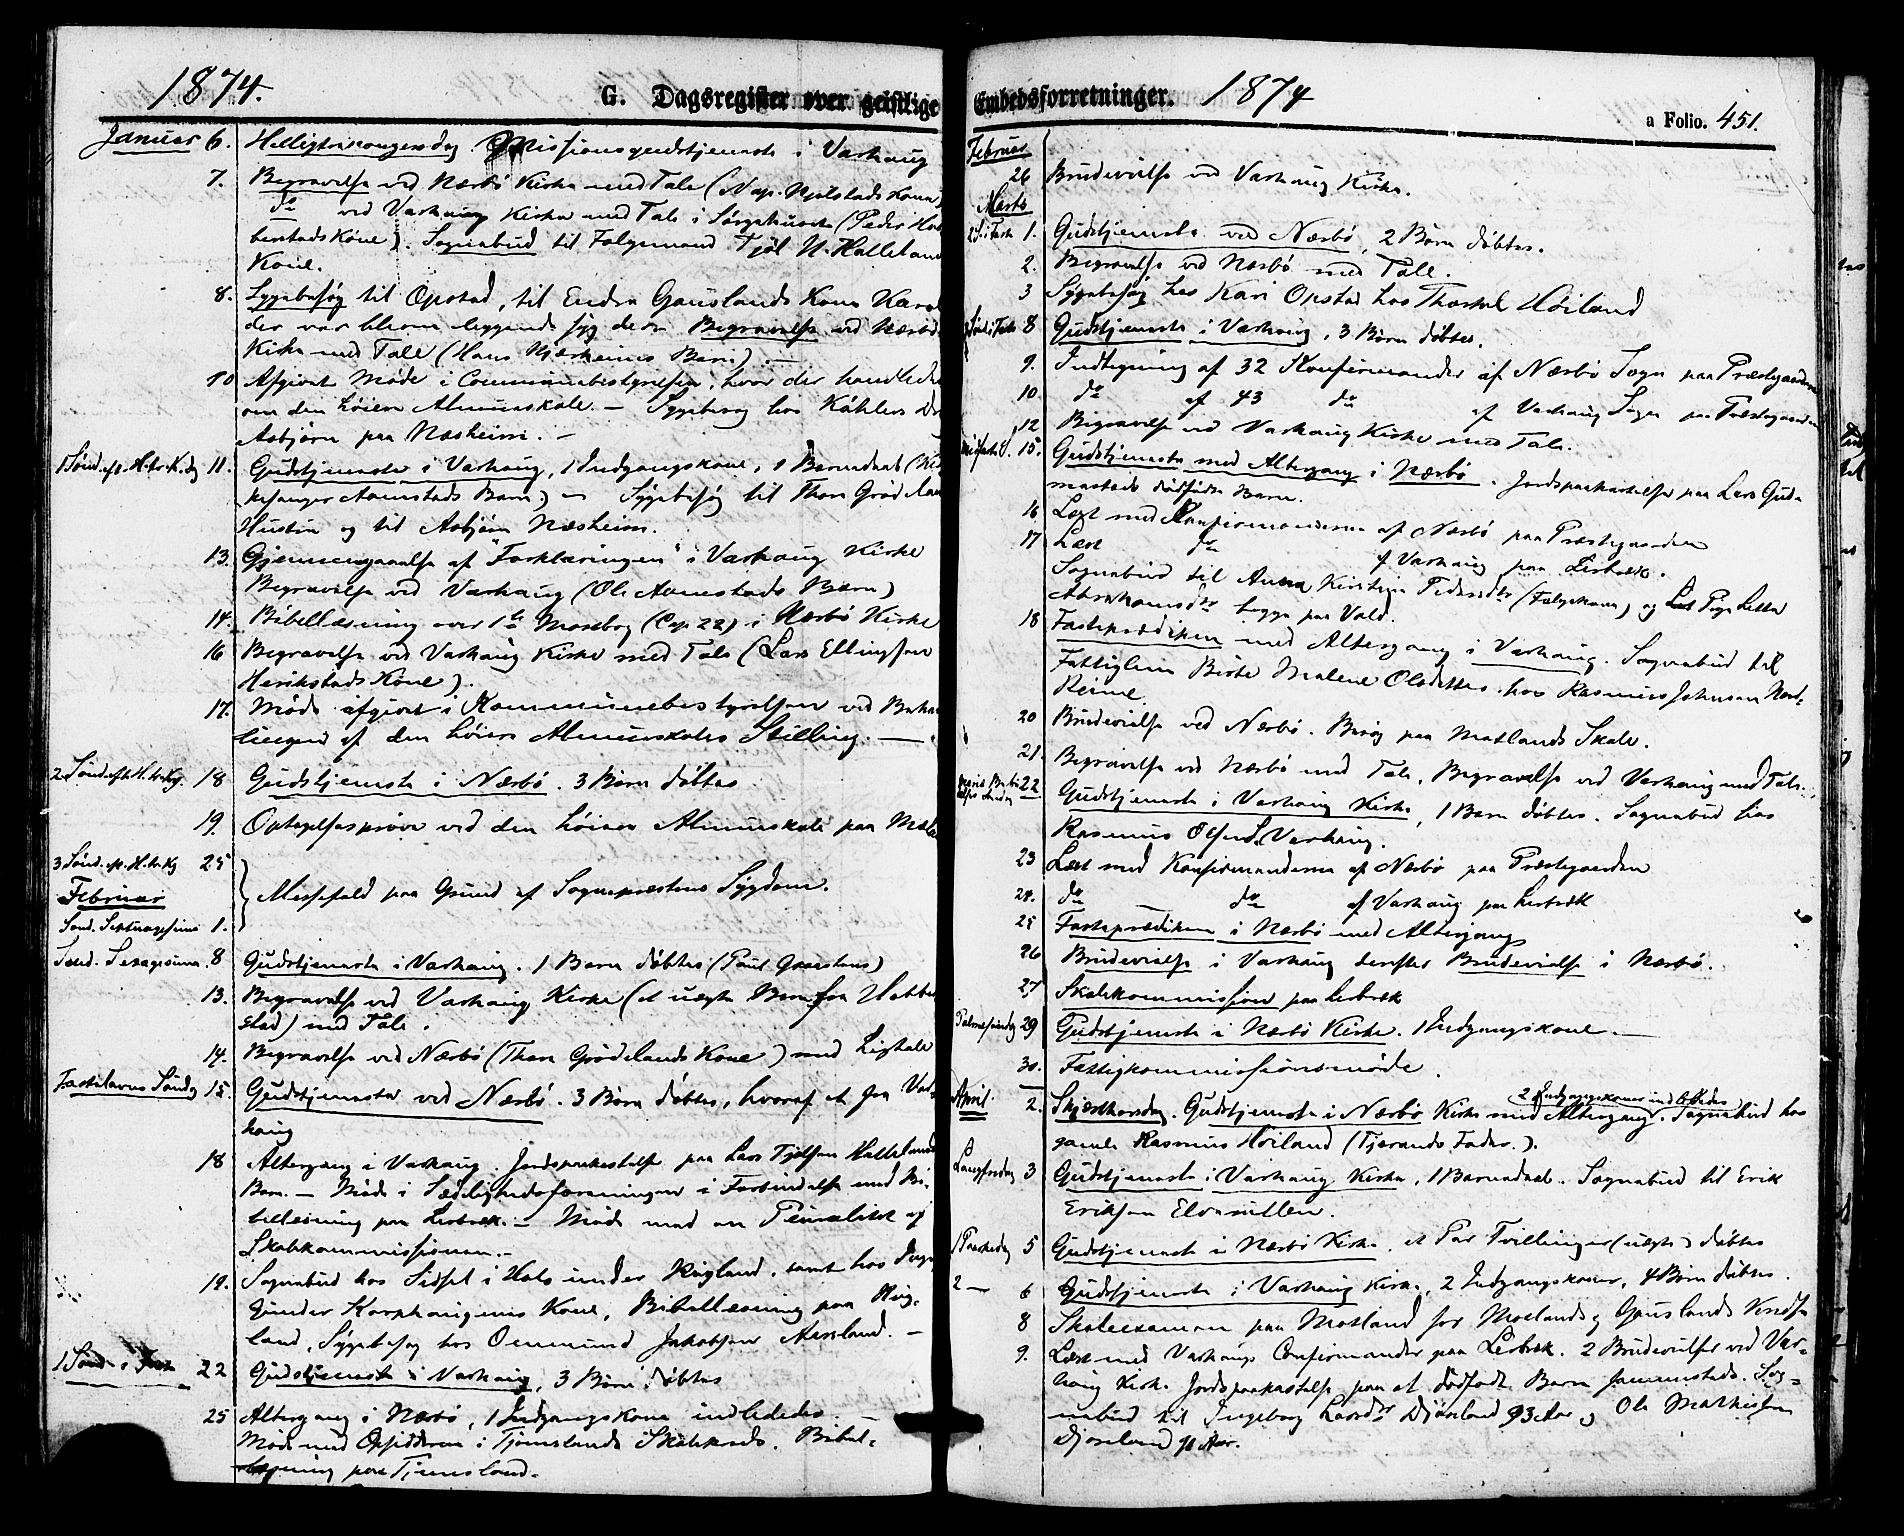 1874.
G. Dagsregister over geistlige
Januar 6. Helligtrekongersdag Missionsgudstjeneste i Varhaug
7. Begravelse ved Nærbø Kirke med Tale (Njølstads Kone)
do ved Varhaug Kirke med Tale i Sørgehuset (Peder
berstads Kone). Sognebud til Følgemand Tjøl N. Hallelands
Kone.
8. Sygebesøg til Opstad, til Endre Gauslands Kone
der var bleven liggende syg der. Begravelse ved Nærbø
Kirke med Tale (Hans Njærheims Barn). —
10 Afgivet Møde i Communebestyrelsen, hvor der handledes
om den høiere Almueskole. — Sygebesøg hos
Asbjørn paa Næsheim. —
1 Sønd. ep. H. tr. K. dg 11. Gudstjeneste i Varhaug, 1 Indgangskone, 1 Barnedaab
Aarrestads Barn) — Sygebesøg til Thore Grødelands
Hustru og til Asbjørn Næsheim.
13. Gjennemgaaelse af "Forklaringen" i Varhaug Kirke
Begravelse ved Varhaug (Ole Aarrestads Barn)
14. Bibellæsning over 1ste Mosebog (Cap. 22) i Nærbø Kirke
16 Begravelse ved Varhaug Kirke med Tale (Lars Ellingsen
Herikstads Kone).
17. Møde afgivet i Kommunebestyrelsen ved
af den høiere Almueskoles Stilling. —
2 Sønd. eft. H. tr. Kg. 18 Gudstjeneste i Nærbø. 3 Børn døbtes
19. Optagelsesprøve ved den høiere Almueskole paa
3 Sønd. ep. H. tr. Kg 25
Februar
Messefald paa Grund af Sognepræstens Sygdom.
Sønd. Septuagesima 1.
Sønd. Sexagesima. 8 Gudstjeneste i Varhaug. 1 Barn døbtes
13. Begravelse ved Varhaug Kirke (et uægte Barn fra Hobber
stad) med Tale.
14. Begravelse ved Nærbø (Thore Grødelands Kone) med Ligtale
Fastelavns Søndag 15. Gudstjeneste ved Nærbø. 3 Børn døbtes, hvoraf et fra Var-
haug
18 Altergang i Varhaug. Jordspaakastelse paa Lars Tjølsen Hallelands
Barn. — Møde i Sædelighedsforeningen i Forbindelse med Bi-
bellæsning paa Lerbræk. — Møde med en Pluralitet af
Skolekommissionen. —
19. Sognebud hos Sidsel i Hole under Ringland, samt hos
Gunder Karphaugens Kone, Bibellæsning paa
land, Sygebesøg hos Ommund Jakobsen —
1 Sønd. i Faste 22 Gudstjeneste i Varhaug, 3 Børn døbtes
25 Altergang i Nærbø, 1 Indgangskone indlededes. —
Møde med Opsidderne i Tjemslands Skolekreds. Bibel-
læsning paa Tjemsland.
Embedsforretninger. 1874
a Folio. 451.
Februar
26 Brudevielse ved Varhaug Kirke.
Marts
2 S. i Faste 1. Gudstjeneste ved Nærbø, 2 Børn døbtes.
2. Begravelse ved Nærbø med Tale.
3 Sygebesøg hos Kari Opstad hos Thorkel Høiland
3 Sønd. i Faste 8 Gudstjeneste i Varhaug, 3 Børn døbtes.
9. Indtegning af 32 Konfirmander af Nærbø Sogn paa Præstegaarden
10. do af 43 do af Varhaug Sogn paa Præstegaarden
12 Begravelse ved Varhaug Kirke med Tale.
Midfaste S. 15. Gudstjeneste med Altergang i Nærbø. Jordspaakastelse paa Lars Gud-
mestads dødfødte Barn.
16 Læst med Konfirmanderne af Nærbø paa Præstegaarden
17 Læst do af Varhaug paa Lerbræk.
Sognebud til Anna Kirstine Pedersdtr (Følgekone) og Pige Lette
Abrahamsdtr begge paa Vold.
18 Fasteprædiken med Altergang i Varhaug. Sognebud til
Fattiglem Birte Malene Olsdatter hos Rasmus Johnsen Nord-
Reime.
20 Brudevielse ved Nærbø. Besøg paa Motlands Skole.
21. Begravelse ved Nærbø med Tale, Begravelse ved Varhaug med Tale.
22 Gudstjeneste i Varhaug Kirke, 1 Barn døbtes. Sognebud hos
Rasmus Olsen Varhaug.
23 Læst med Konfirmanderne af Nærbø paa Præstegaarden
24. do — do af Varhaug paa Lerbræk
25 Fasteprædiken i Nærbø med Altergang
26 Brudevielse i Varhaug derefter Brudevielse i Nærbø.
27 Skolekommission paa Lerbræk
Palmesøndag 29 Gudstjeneste i Nærbø Kirke. 1 Indgangskone. —
30. Fattigkommissionsmøde.
April. 2. Skjærthorsdag. Gudstjeneste i Nærbø Kirke med Altergang. Sognebud hos
2 Indgangskoner indlededes
gamle Rasmus Høiland (Tjærands Fader.).
Langfredag 3 Gudstjeneste i Varhaug Kirke, 1 Barnedaab. Sognebud til Erik
Eriksen
1 Paaskedag 5 Gudstjeneste i Nærbø Kirke. et Par Tvillinger (uægte) døbtes
2 — 6 Gudstjeneste i Varhaug Kirke, 2 Indgangskoner, 4 Børn døbtes.
8 Skoleexamen paa Motland for Motlands og Gouslands Kredse
9. Læst med Varhaugs Confirmander paa Lerbræk. 2 Brudevielser ved Var-
haug Kirke. Jordspaakastelse paa et dødfødt Barn. Sog-
nebud til Ingeborg Larsdtr Djøsland 93 Aar og Ole Mathissen
Djøsland 91 Aar.